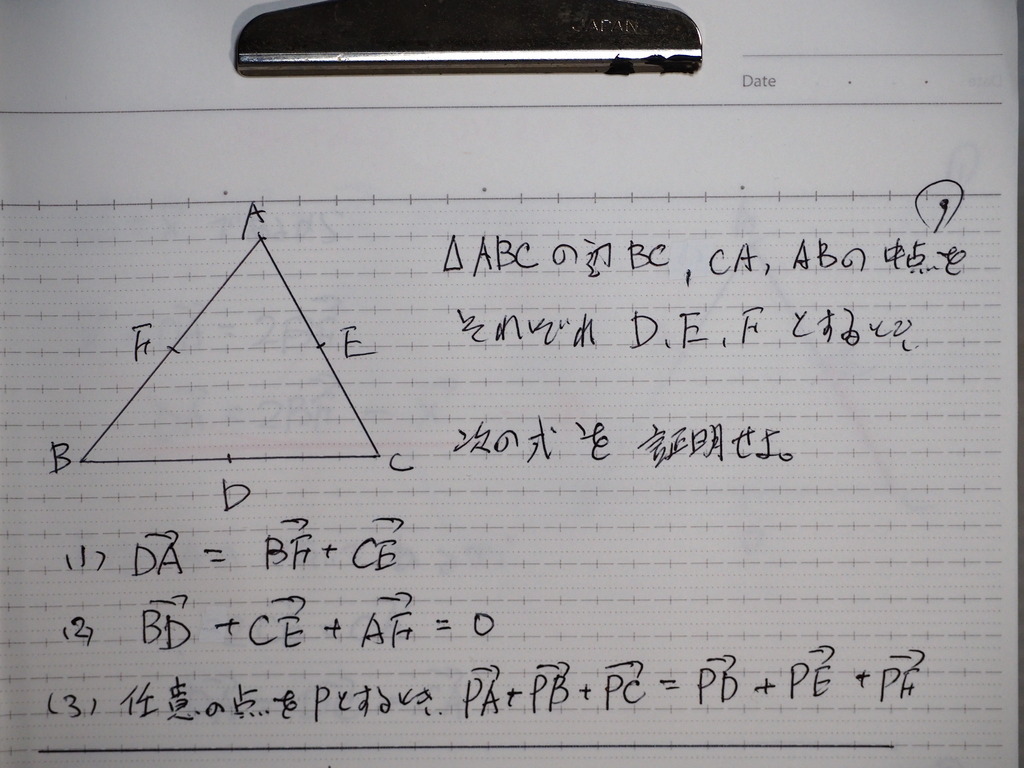 JAPAN
Date
9
△ABCの辺BC, CA, ABの中点を
それぞれ D, E, F とするとき、
次の式を証明せよ。
A
F
E
B
C
D
(1) \overrightarrow{DA} = \overrightarrow{BF} + \overrightarrow{CE}
(2) \overrightarrow{BD} + \overrightarrow{CE} + \overrightarrow{AF} = 0
(3) 任意の点をPとするとき、\overrightarrow{PA} + \overrightarrow{PB} + \overrightarrow{PC} = \overrightarrow{PD} + \overrightarrow{PE} + \overrightarrow{PF}